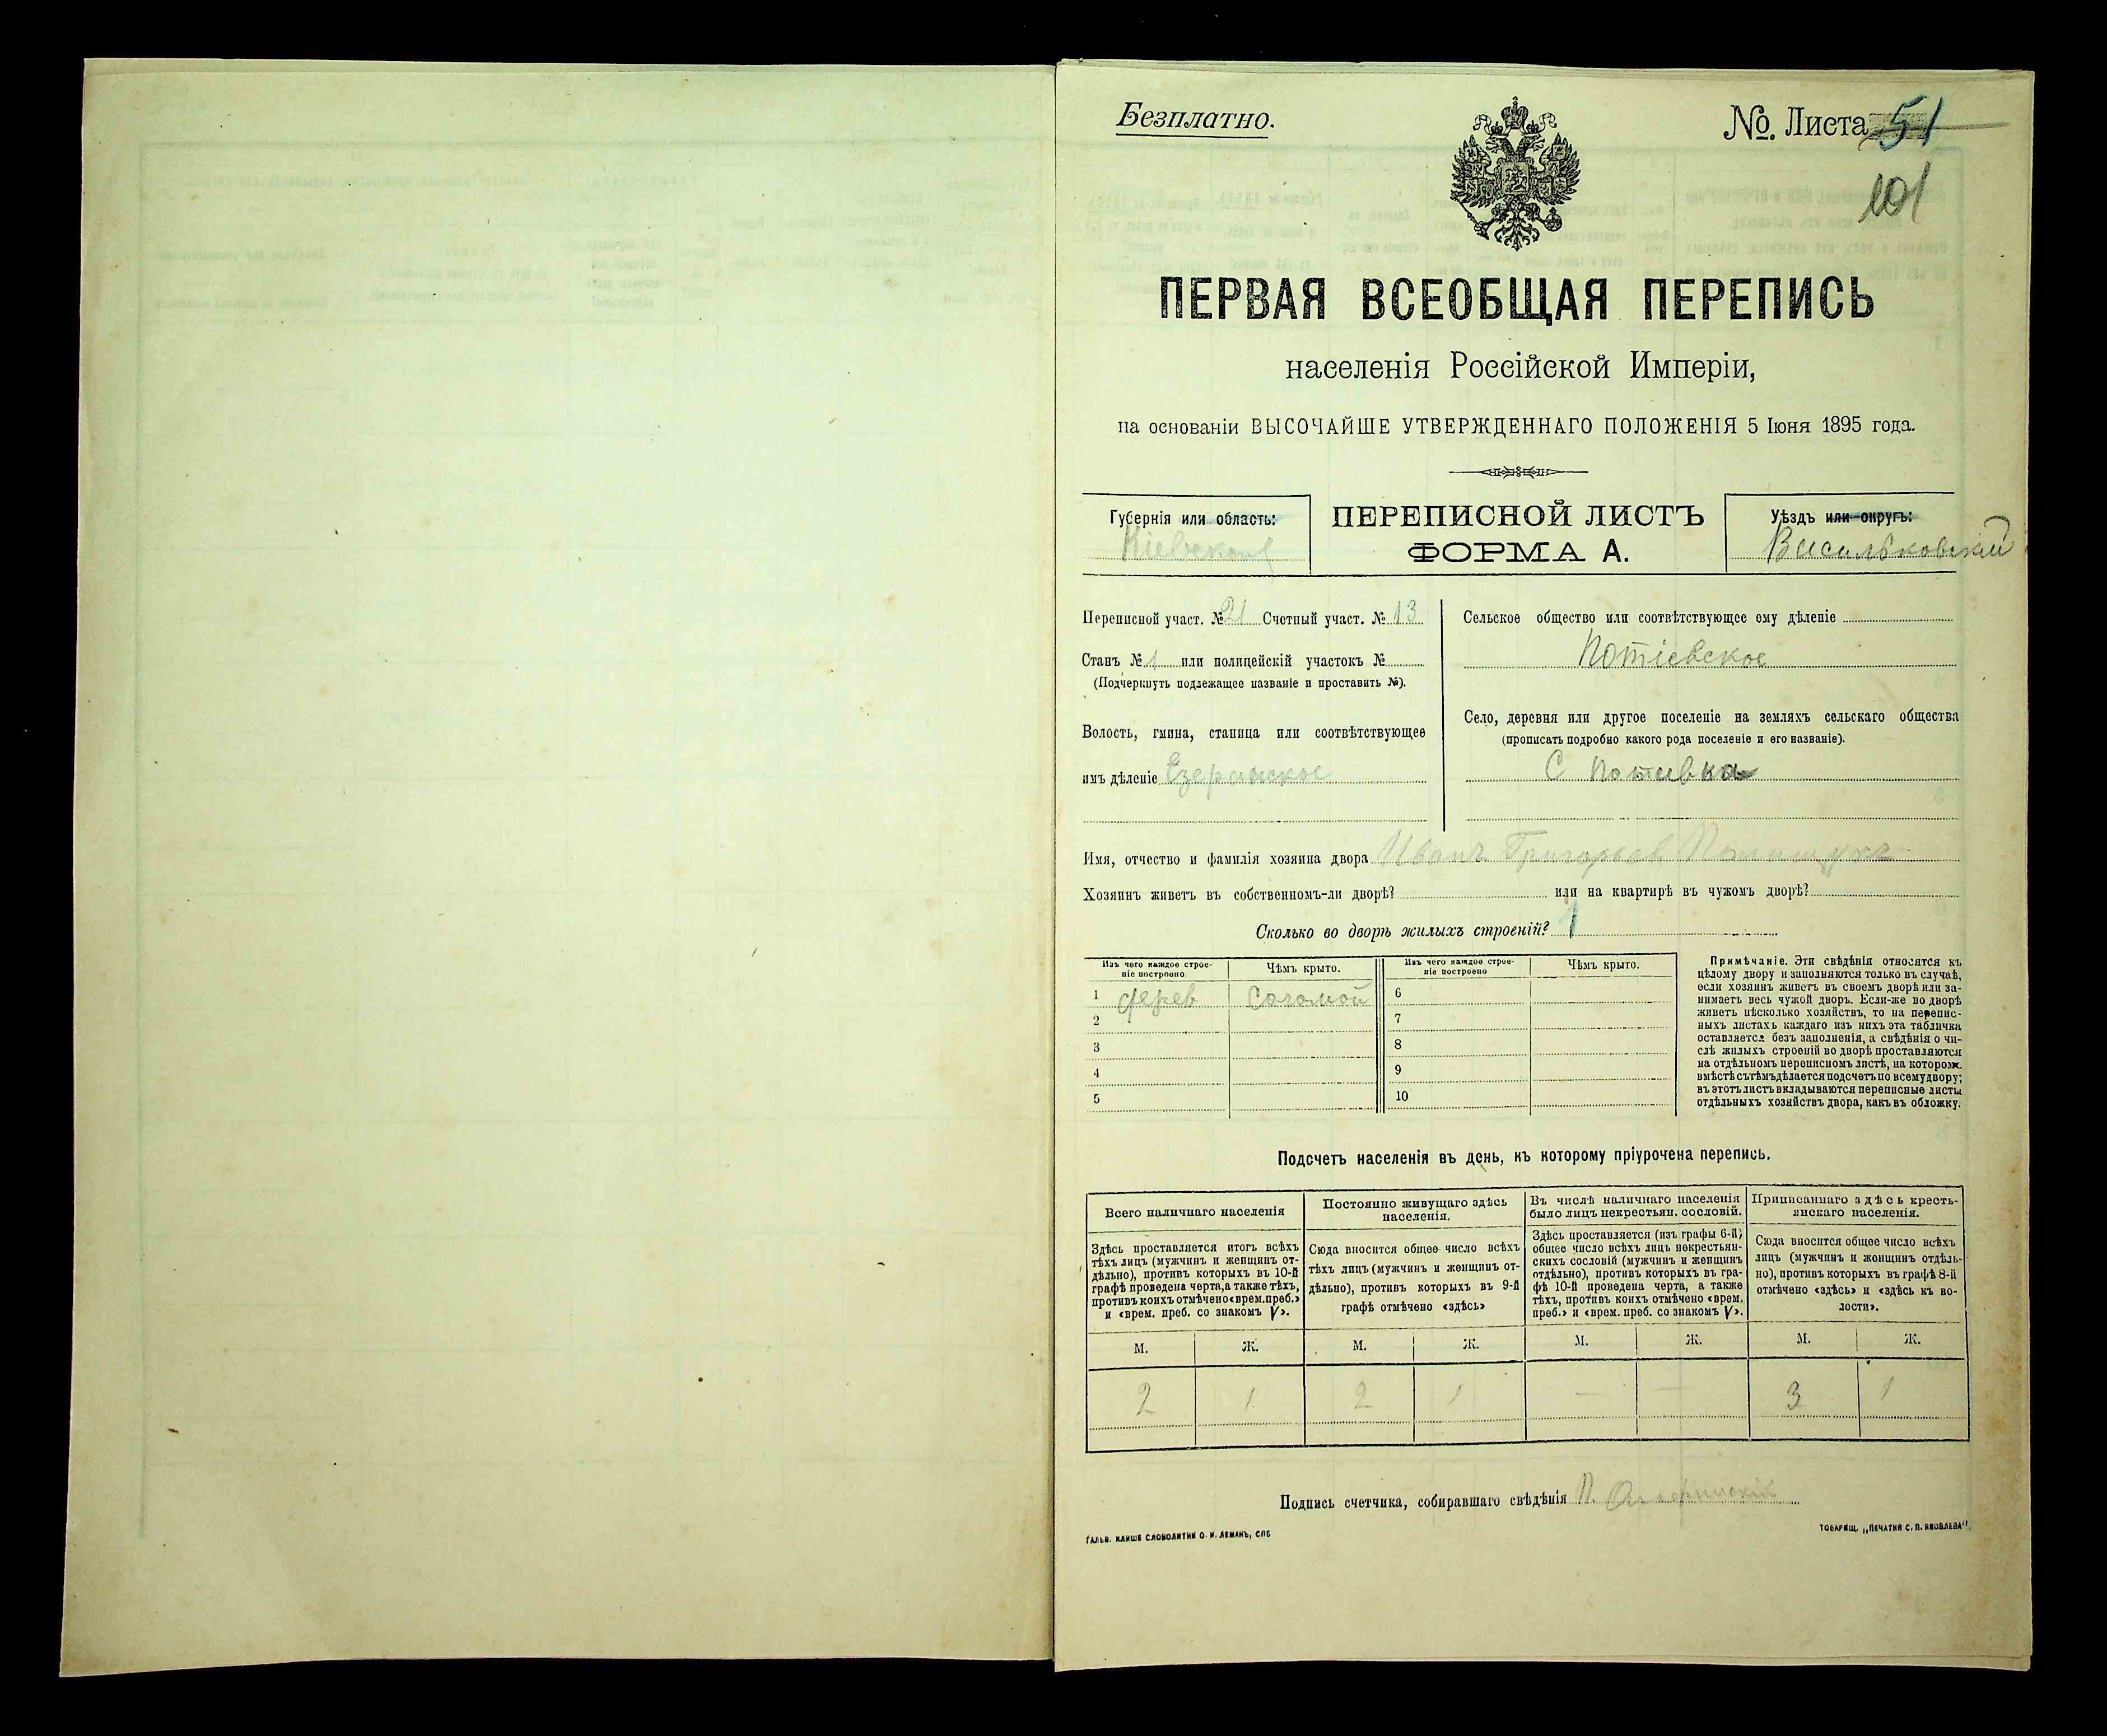 Безплатно.
№. Листа 51
101
ПЕРВАЯ ВСЕОБЩАЯ ПЕРЕПИСЬ
населенія Россійской Имперіи,
на основаніи ВЫСОЧАЙШЕ УТВЕРЖДЕННАГО ПОЛОЖЕНІЯ 5 Іюня 1895 года.
Губернія или область:
Кіевская
ПЕРЕПИСНОЙ ЛИСТЪ
ФОРМА А.
Уѣздъ или округъ:
Васильковскій
Переписной участ. № 21 Счетный участ. № 13
Станъ № 1 или полицейскій участокъ №
(Подчеркнуть подлежащее названіе и проставить №).
Волость, гмина, станица или соотвѣтствующее
имъ дѣленіе Езерянское
Сельское общество или соотвѣтствующее ему дѣленіе
Потіевское
Село, деревня или другое поселеніе на земляхъ сельскаго общества
(прописать подробно какого рода поселеніе и его названіе).
С Потиевка
Имя, отчество и фамилія хозяина двора Иванъ Григорьев
Хозяинъ живетъ въ собственномъ-ли дворѣ? или на квартирѣ въ чужомъ дворѣ?
Сколько во дворѣ жилыхъ строеній? 1
Изъ чего каждое строе-
ніе построено
Чѣмъ крыто.
Изъ чего каждое строе-
ніе построено
Чѣмъ крыто.
1 дерев Соломой 6
2 7
3 8
4 9
5 10
Примѣчаніе. Эти свѣдѣнія относятся къ
цѣлому двору и заполняются только въ случаѣ,
если хозяинъ живетъ въ своемъ дворѣ или за-
нимаетъ весь чужой дворъ. Если-же во дворѣ
живетъ нѣсколько хозяйствъ, то на перепис-
ныхъ листахъ каждаго изъ нихъ эта табличка
оставляется безъ заполненія, а свѣдѣнія о чи-
слѣ жилыхъ строеній во дворѣ проставляются
на отдѣльномъ переписномъ листѣ, на которомъ
вмѣстѣ съ тѣмъ дѣлается подсчетъ по всему двору;
въ этотъ листъ вкладываются переписные листы
отдѣльныхъ хозяйствъ двора, какъ въ обложку.
Подсчетъ населенія въ день, къ которому пріурочена перепись.
Всего наличнаго населенія
Постоянно живущаго здѣсь
населенія.
Въ числѣ наличнаго населенія
было лицъ некрестьян. сословій.
Приписаннаго здѣсь кресть-
янскаго населенія.
Здѣсь проставляется итогъ всѣхъ
тѣхъ лицъ (мужчинъ и женщинъ от-
дѣльно), противъ которыхъ въ 10-й
графѣ проведена черта, а также тѣхъ,
противъ коихъ отмѣчено «врем. преб.»
и «врем. преб. со знакомъ V».
Сюда вносится общее число всѣхъ
тѣхъ лицъ (мужчинъ и женщинъ от-
дѣльно), противъ которыхъ въ 9-й
графѣ отмѣчено «здѣсь»
Здѣсь проставляется (изъ графы 6-й)
общее число всѣхъ лицъ некрестьян-
скихъ сословій (мужчинъ и женщинъ
отдѣльно), противъ которыхъ въ гра-
фѣ 10-й проведена черта, а также
тѣхъ, противъ коихъ отмѣчено «врем.
преб.» и «врем. преб. со знакомъ V».
Сюда вносится общее число всѣхъ
лицъ (мужчинъ и женщинъ отдѣль-
но), противъ которыхъ въ графѣ 8-й
отмѣчено «здѣсь» и «здѣсь къ во-
лости».
М. Ж. М. Ж. М. Ж. М. Ж.
2 1 2 1 — — 3 1
Подпись счетчика, собиравшаго свѣдѣнія П.
ГАЛЬВ. КЛИШЕ СЛОВОЛИТНИ О. И. ЛЕМАНЪ, СПБ
ТОВАРИЩ. „ПЕЧАТНЯ С. П. ЯКОВЛЕВА".